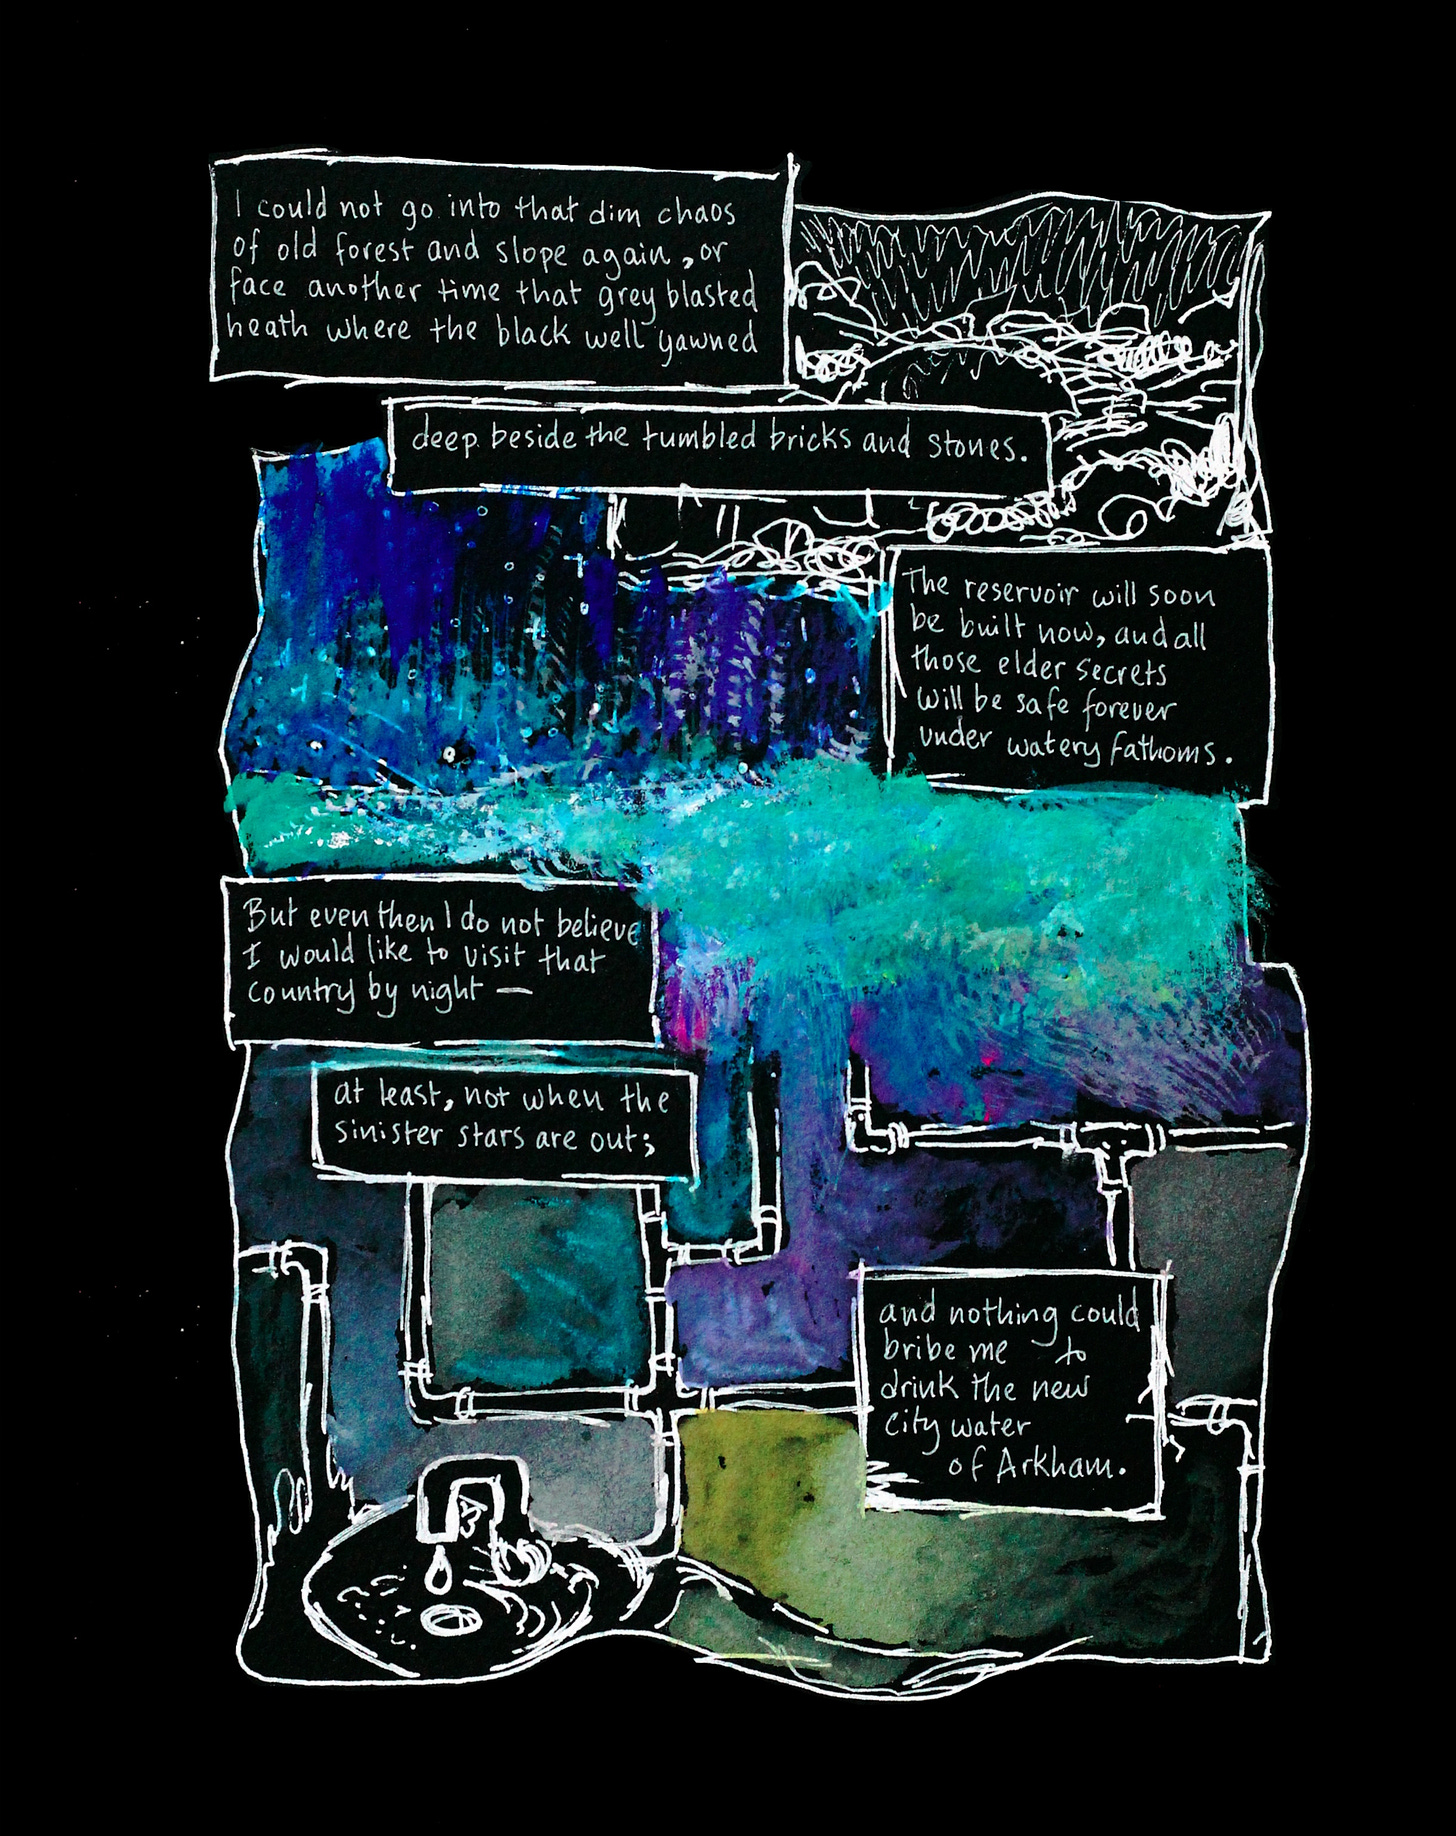 I could not go into that dim chaos
of old forest and slope again, or
face another time that grey blasted
heath where the black well yawned
deep beside the tumbled bricks and stones.
The reservoir will soon
be built now, and all
those elder secrets
will be safe forever
under watery fathoms.
But even then I do not believe
I would like to visit that
country by night —
at least, not when the
sinister stars are out;
and nothing could
bribe me to
drink the new
city water
of Arkham.